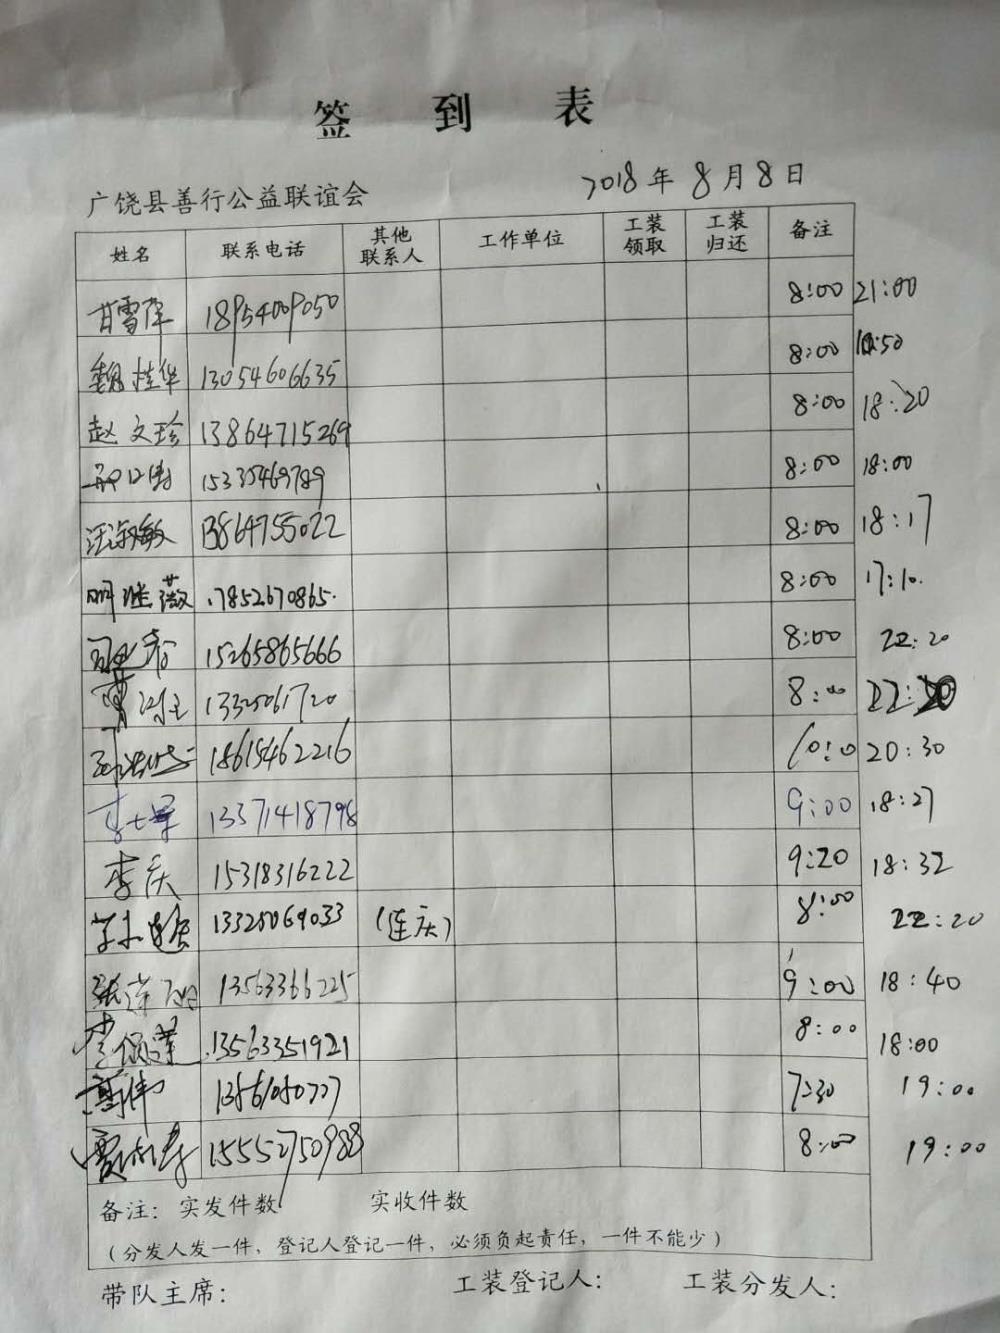 签到表
广饶县善行公益联谊会 2018年8月8日
姓名 联系电话 其他联系人 工作单位 工装领取 工装归还 备注
甘雪萍 18954009050 8:00 21:00
魏桂华 13054606635 8:00
赵文珍 13864715269 8:00 18:20
15335469789 8:00 18:00
汪淑敏 13864755022 8:00 18:17
明继薇 17852670865 8:00 17:10.
15265865666 8:00 22:20
13325061720 8:00
18615462216 10:10 20:30
13371418798 9:00 18:27
李庆 15318316222 9:20 18:32
13325069033 (连庆) 8:00 22:20
13563366225 9:00 18:40
13563351921 8:00 18:00
7:30 19:00
15552750988 8:00 19:00
备注: 实发件数 实收件数
(分发人发一件, 登记人登记一件, 必须负起责任, 一件不能少)
带队主席: 工装登记人: 工装分发人: